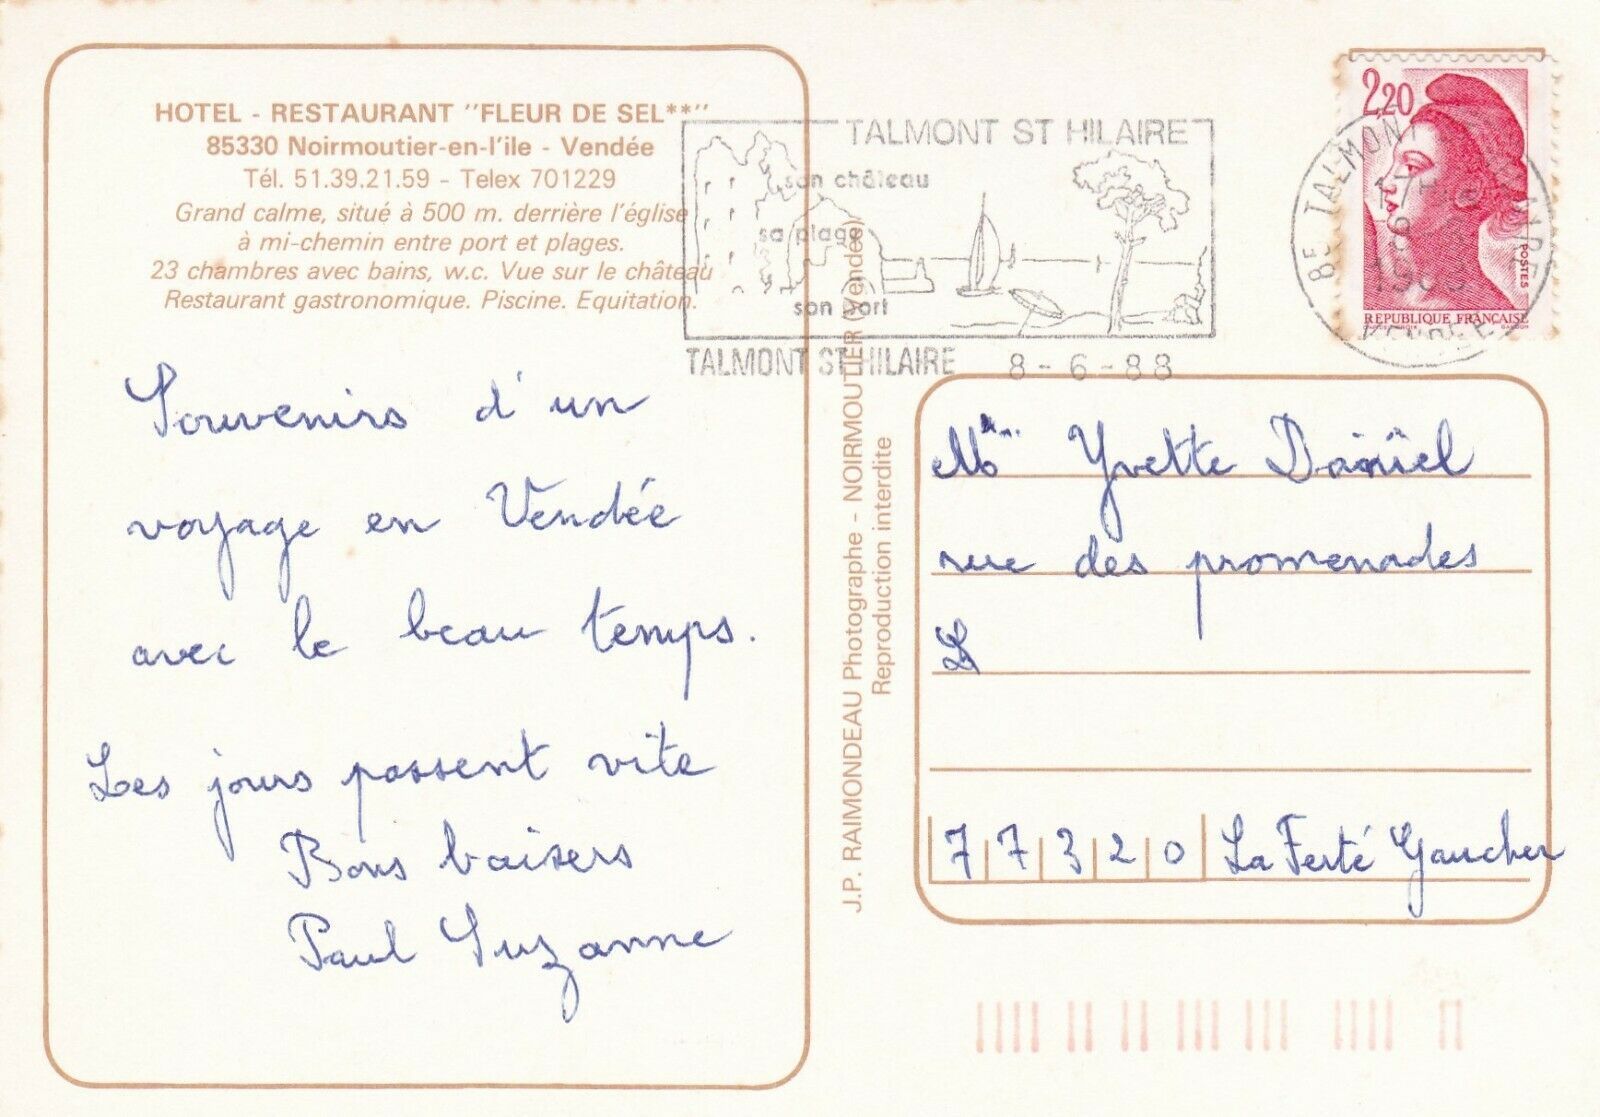 HOTEL - RESTAURANT "FLEUR DE SEL**"
85330 Noirmoutier-en-l'ile - Vendée
Tél. 51.39.21.59 - Telex 701229
Grand calme, situé à 500 m. derrière l'église
à mi-chemin entre port et plages.
23 chambres avec bains, w.c. Vue sur le château
Restaurant gastronomique. Piscine. Equitation.
Souvenirs d'un
voyage en Vendée
avec le beau temps.
Les jours passent vite
Bons baisers
Paul Suzanne
J.P. RAIMONDEAU Photographe - NOIRMOUTIER (Vendée)
Reproduction interdite
TALMONT ST HILAIRE
son château
sa plage
son port
TALMONT ST HILAIRE 8-6-88
2,20
POSTES
REPUBLIQUE FRANÇAISE
85 TALMONT
Mme Yvette Daniel
rue des promenades
77320 La Ferté Gaucher